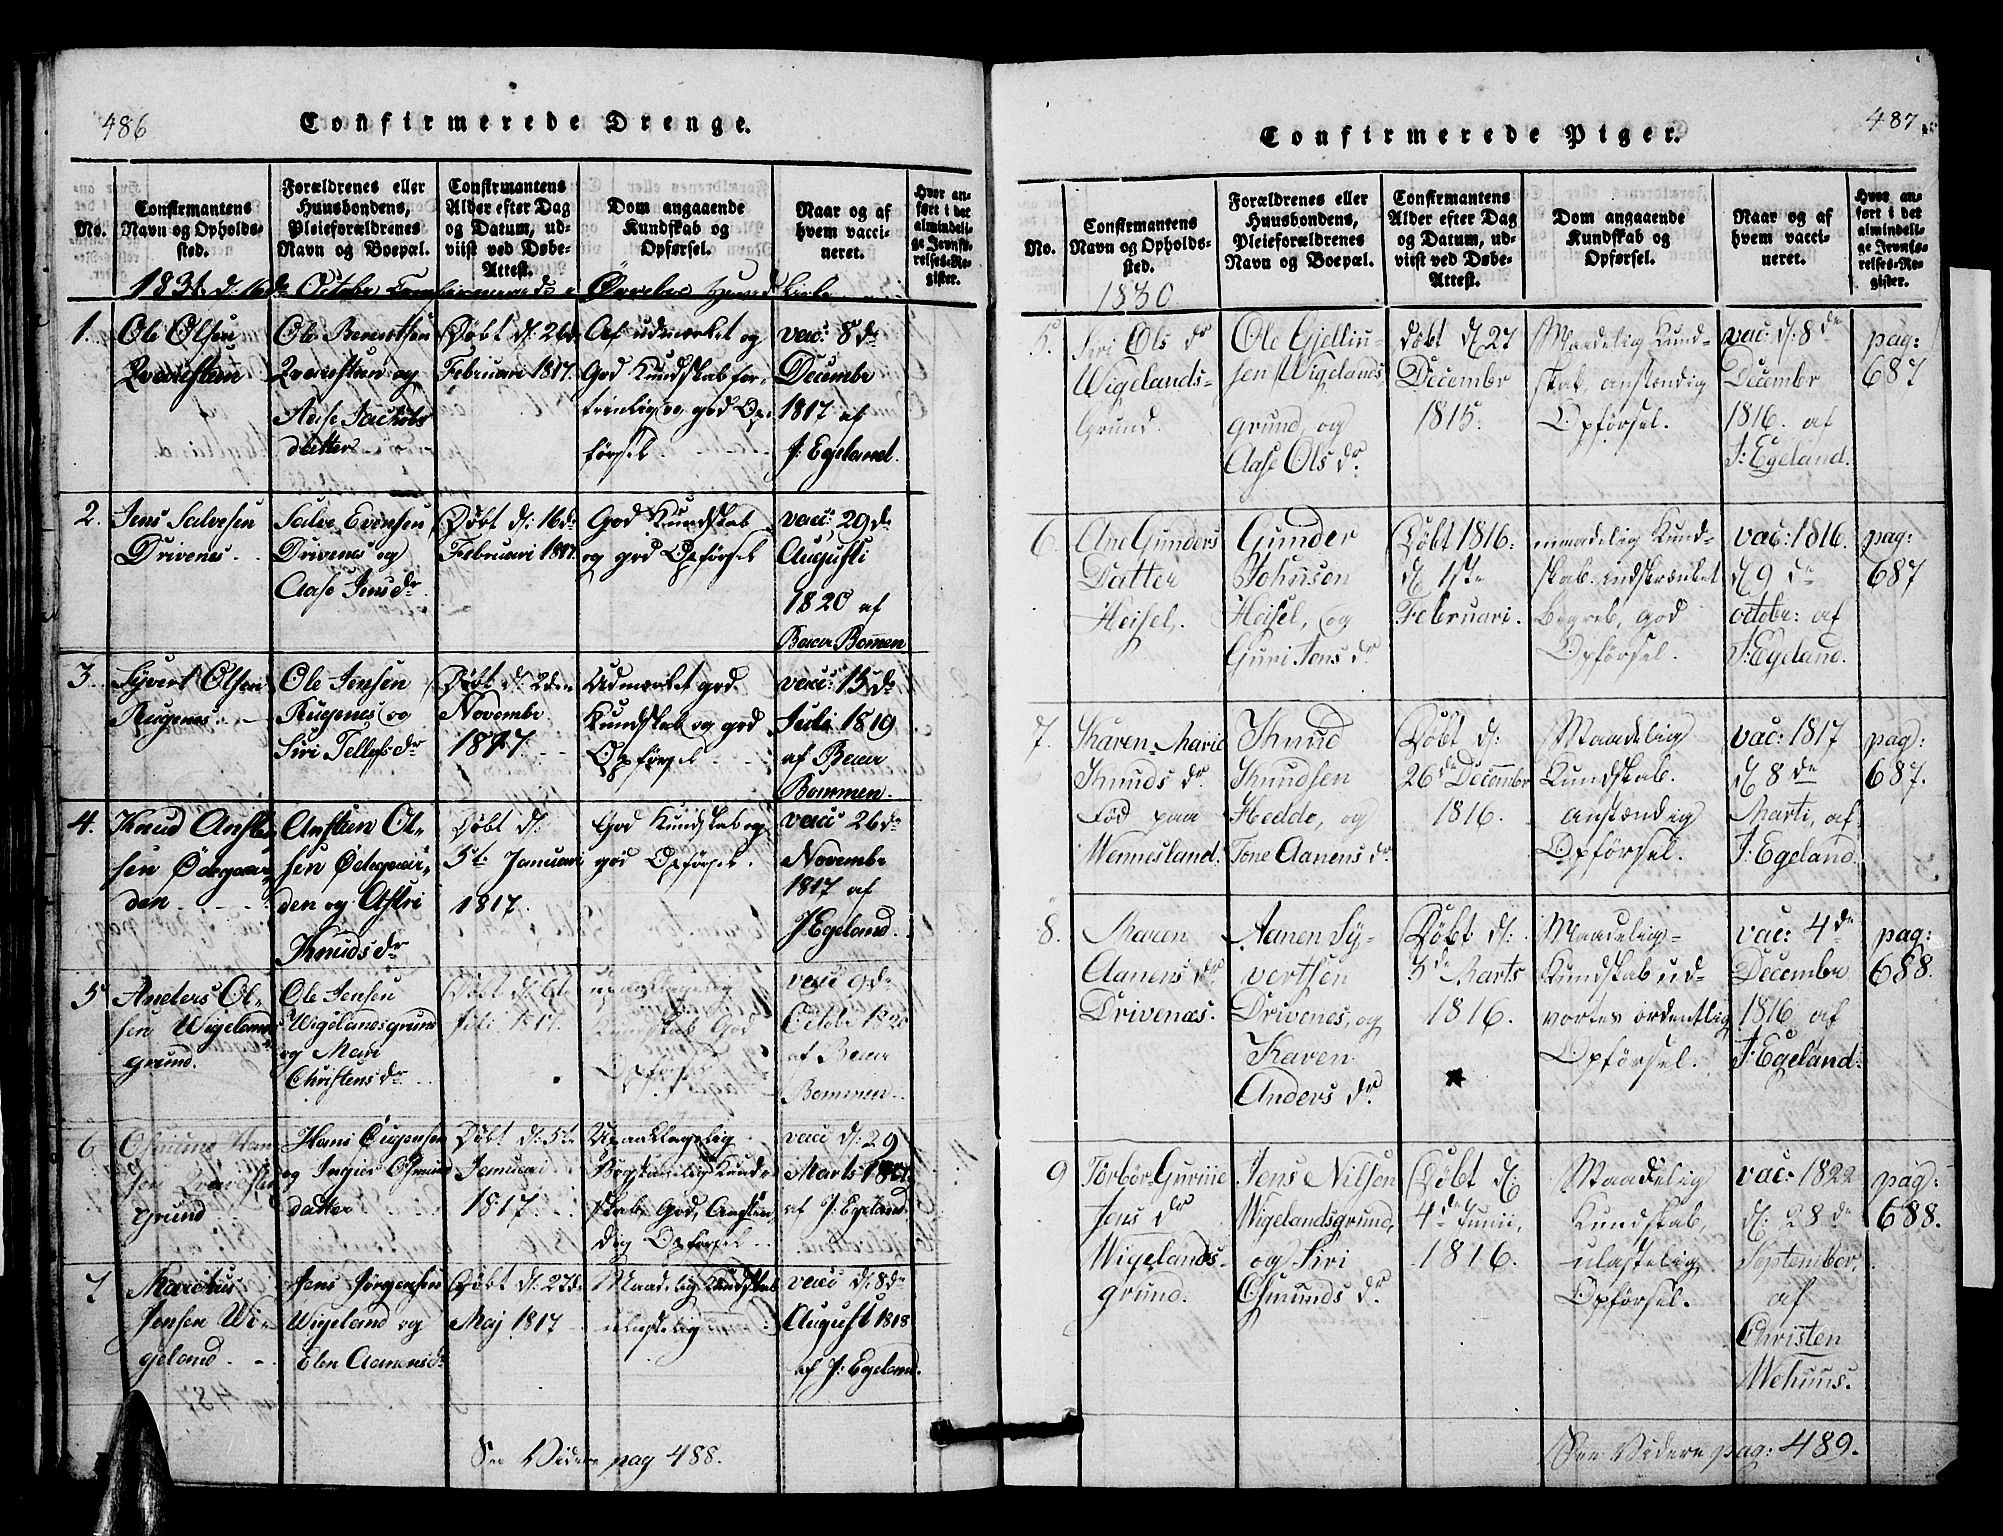 486
Confirmerede Drenge.
No.
Confirmantens
Navn og Opholds-
sted.
Forældrenes eller
Huusbondens,
Pleieforældrenes
Navn og Boepæl.
Confirmantens
Alder efter Dag
og Datum, ud-
viist ved Døbe-
Attest.
Dom angaaende
Kundskab og
Opførsel.
Naar og af
hvem vacci-
neret.
Hvor an-
ført i det
almindeli-
ge Jevnfø-
relses-Re-
gister.
1831 d: 16de October
1.
Ole Olsen
Ole Berntsen
og
Aase Jachobs
datter
Døbt d: 26de
Februari 1817.
Af udmærket og
God Kundskab for-
trinlig og god Op-
førsel
vac: 8de
Decembr
1817 af
J: Egeland.
2.
Jens Salvesen
Drivenes
Salve Evensen
Drivenes og
Aase Jensdr
Døbt d: 16de
Februari 1817.
God Kundskab
og god Opførsel
vac: 29de
Augusti
1820 af
Bommen
3.
Syvert Olsen
Rugenes
Ole Jensen
Rugenes og
Siri Tellefsdr
Døbt d: 2den
Novembr
1817
Udmærket god
Kundskab og god
Opførsel
vac: 15de
Juli 1819
af
Bommen.
4.
Knud Ansten-
sen Ødegaar-
den
Ansten Ol-
sen Ødegaar-
den og Astri
Knudsdr
Døbt d:
5te Januari
1817.
God Kundskab og
god Opførsel.
vac: 26de
Novembr
1817 af
J: Egeland.
5
Anders Ol-
sen Wigelands
grund.
Ole Jensen
Wigelandsgrund
og Mari
Christensdr
Døbt d: 6te
1817.
upaaklagelig
Kundskab God
Opførsel
vac: 9de
Octobr 1820
af
Bommen
6
Osmund Han-
sen
grund
Hans
og Inger Osmund
datter
Døbt d: 5te
Januari
1817
Upaaklagelig
Kund-
skab, God, Ansten-
dig Opførsel
vac: d: 29
Marts
af J: Egeland
7
Marcus
Jensen Wi-
geland.
Jens Jørgensen
Wigeland og
Elen Aanensdr
Døbt d: 27de
Maj 1817
Maadelig Kundskab
ulastelig
vac: d: 8de
August 1818
af J: Egeland.
See Videre pag 488.
487
Confirmerede Piger.
No.
Confirmantens
Navn og Opholds-
sted.
Forældrenes eller
Huusbondens,
Pleieforældrenes
Navn og Boepæl.
Confirmantens
Alder efter Dag
og Datum, ud-
viist ved Døbe-
Attest.
Dom angaaende
Kundskab og
Opførsel.
Naar og af
hvem vacci-
neret.
Hvor an-
ført i det
almindeli-
ge Jevnfø-
relses-Re-
gister.
1830.
5.
Siri Ols dr
Wigelands-
grund.
Ole Gjellin-
sen Wigelands
grund, og
Aase Ols dr
døbt d 27
Decembr
1815.
Maadelig Kund-
skab, anstændig
Opførsel.
vac: d: 8de
Decembr
1816. af
J: Egeland.
pag:
687
6.
Ane Gunders
Datter
Heisel.
Gunder
Johnsen
Heisel, og
Guri Jens dr
Døbt 1816.
d 1ste
Februari.
maadelig Kund-
skab indskrænket
Begreb, god
Opførsel.
vac: 1816.
d 9de
octobr: af
J: Egeland.
pag:
687
7.
Karen-Marie
Knuds dr
Fød paa
Wennesland.
Knud
Knudsen
Hedde, og
Tone Aanens dr
Døbt d:
26de Decembr
1816.
Maadelig
Kundskab.
anstændig
Opførsel.
vac: 1817
d 8de
Marti, af
J: Egeland.
pag:
687.
8.
Maren
Aanens dr
Drivenæs.
Aanen Sy-
vertsen
Drivenes, og
Karen
Anders dr
Døbt d:
3de Marts
1816.
Maadelig-
Kundskab ud-
vortes ordentlig
Opførsel.
vac: 4de
Decembr
1816 af
J: Egeland.
pag:
688.
9
Torbør Gurine
Jens dr
Wigelands-
grund.
Jens Nilsen
Wigelandsgrund,
og Siri
Osmunds dr
Døbt d:
4de Junii,
1816.
Maadelig
Kundskab,
ulastelig
Opførsel.
vac: 1822
d: 28de
September,
af
Christen
Wehuus.
pag:
688.
See Videre pag: 489.